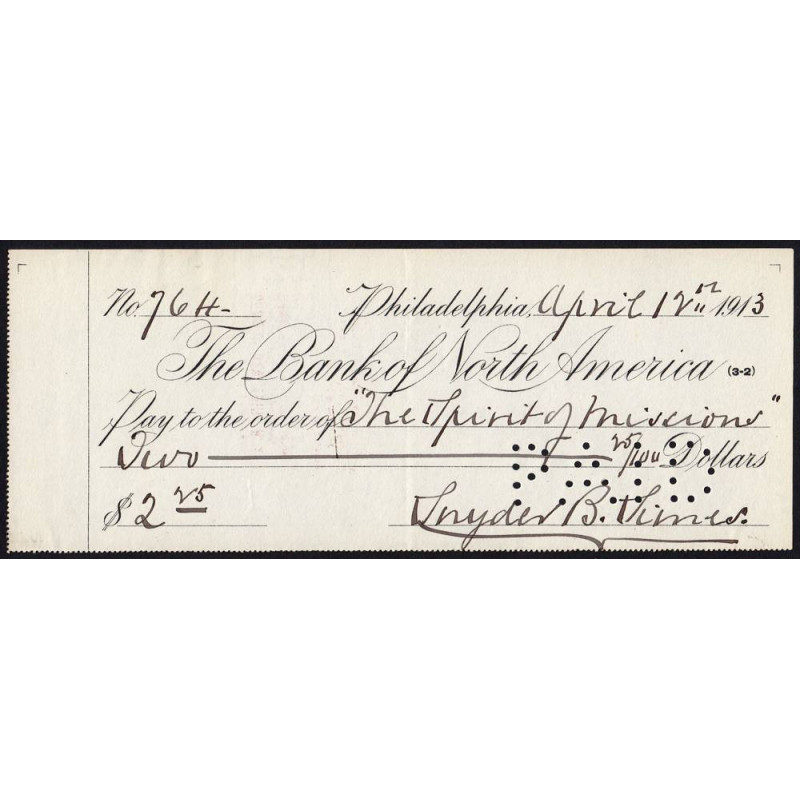 No. 764- Philadelphia, April 12" 1913
The Bank of North America (3-2)
Pay to the order of "The Spirit of Missions"
Two 25/100 Dollars
$ 2 25 Snyder B. Simes.